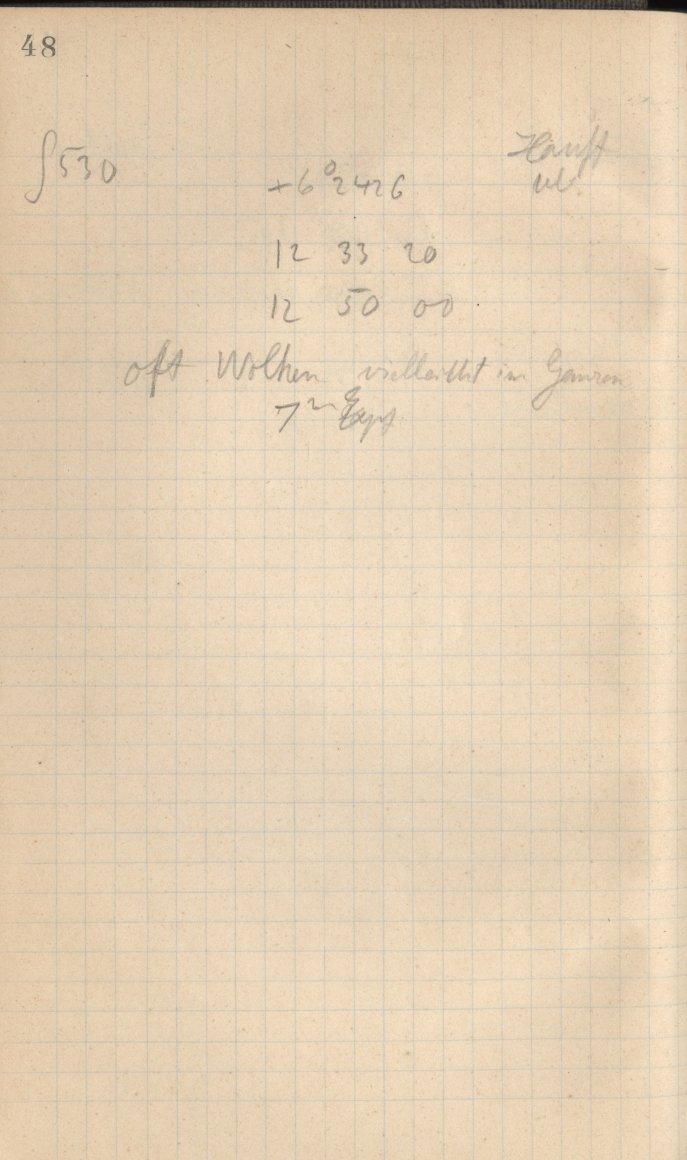 48
∫530
+6° 2426
12 33 20
12 50 00
oft Wolken vielleicht im Ganzen
7ᵐ Exp